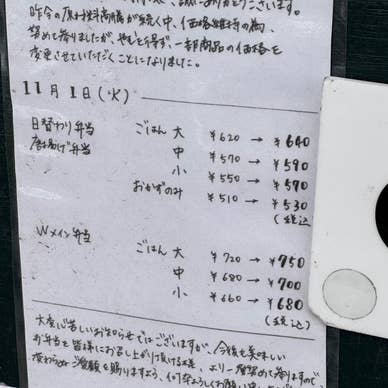 誠にありがとうございます。
昨今の原材料高騰が続く中、価格維持の為、
努めて参りましたが、やむを得ず、一部商品の価格を
変更させていただくことになりました。
11月1日(火)
日替わり弁当 ごはん 大 ¥620 → ¥640
唐揚げ弁当 中 ¥570 → ¥590
小 ¥550 → ¥570
おかずのみ ¥510 → ¥530
(税込
Wメイン弁当 ごはん 大 ¥720 → ¥750
中 ¥680 → ¥700
小 ¥660 → ¥680
(税込)
大変心苦しいお知らせではございますが、今後も美味しい
お弁当を皆様にお召し上がり頂ける様、より一層努めて参りますので
変わらぬご愛顧を賜りますよう、何卒よろしくお願い申し